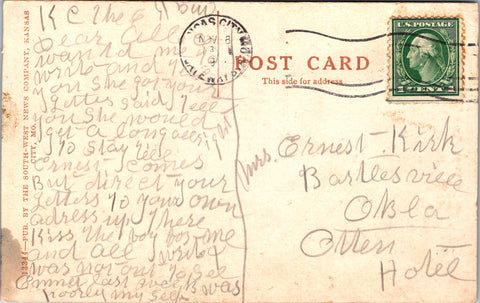 K C the 6 Nov
Dear
wanted me to
write and tell
you She got your
letters said tell
you She would
get a long
to stay till
Ernest Comes
But direct your
Letters to your own
adress up There
Kiss the boy for me
and all I write
was not out to See
last week was
poorly my Self
13344—PUB. BY THE SOUTH-WEST NEWS COMPANY, KANSAS
CITY, MO.
KANSAS CITY
NOV 8
POST CARD
This side for address
U.S. POSTAGE
1 CENT 1
Mrs. Ernest Kirk
Bartlesville
Okla
Otten
Hotel